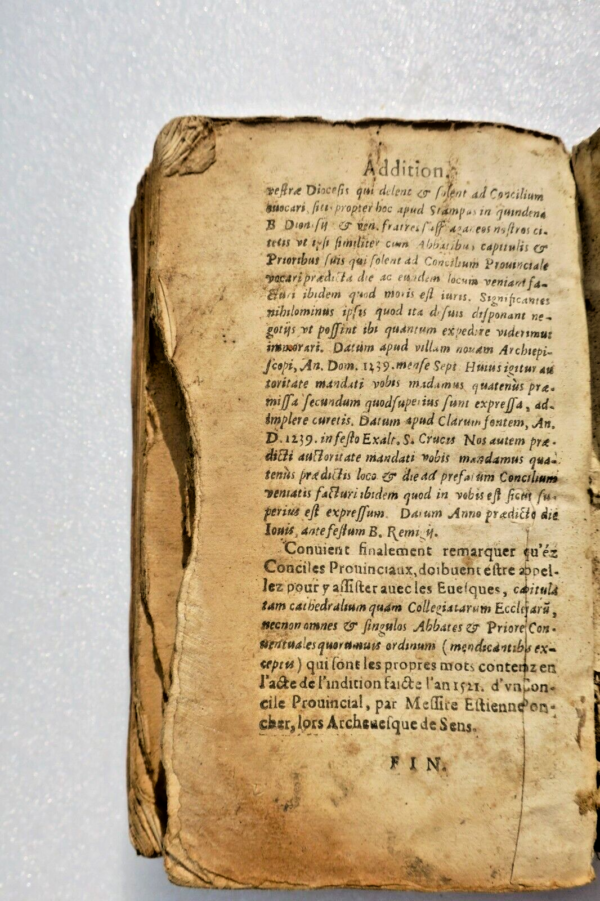 Addition.
vestræ Diocesis qui debent & solent ad Concilium
propter hoc apud Stampas in quindena
B Dionysij & ven. fratres nostros
ut ipsi similiter cum Abbatibus capitulis &
Prioribus suis qui solent ad Concilium Prouinciale
vocari prædicta die ac eundem locum veniant fa-
cturi ibidem quod moris est iuris. Significantes
nihilominus ipsis quod ita de suis disponant ne-
gotijs vt possint ibi quantum expedire viderimus
immorari. Datum apud villam nouam Archiepi-
scopi, An. Dom. 1239. mense Sept. Huius igitur au
toritate mandati vobis mādamus quatenus præ-
missa secundum quod superius sunt expressa, ad-
implere curetis. Datum apud Clarum fontem, An.
D. 1239. in festo Exalt. S. Crucis Nos autem præ-
dicti auctoritate mandati vobis mandamus qua-
tenus prædictis loco & die ad prefatum Concilium
veniatis facturi ibidem quod in vobis est sicut su-
perius est expressum. Datum Anno prædicto die
Iouis, ante festum B. Remigij.
Conuient finalement remarquer qu'éz
Conciles Prouinciaux, doibuent estre appel-
lez pour y assister auec les Euesques, capitula
tam cathedralium quam Collegiatarum Ecclesiarū,
necnon omnes & singulos Abbates & Priore Con-
uentuales quorumuis ordinum (mendicantibus ex-
ceptis) qui sont les propres mots contenuz en
l'acte de l'indition faicte l'an 1521. d'vn Con-
cile Prouincial, par Messire Estienne Pon-
cher, lors Archeuesque de Sens.
FIN.